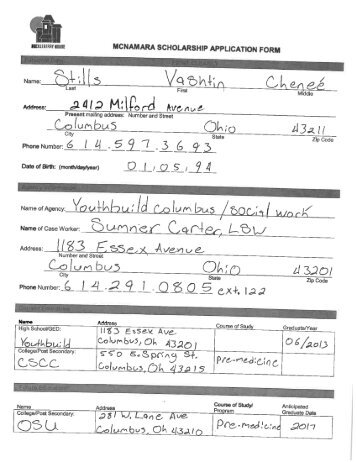 HUCKLEBERRY HOUSE
MCNAMARA SCHOLARSHIP APPLICATION FORM
Name: Stills Vashtin Cheneé
Last First Middle
Address: 2412 Milford Avenue
Present mailing address: Number and Street
Columbus Ohio 43211
City State Zip Code
Phone Number: 614.597.3693
Date of Birth: (month/day/year) 01,05,94
Name of Agency: Youthbuild Columbus / social work
Name of Case Worker: Sumner Carter, LSW
Address: 1183 Essex Avenue
Number and Street
Columbus Ohio 43201
City State Zip Code
Phone Number: 614.291.0805 ext. 122
Name Address Course of Study Graduate/Year
High School/GED: 1183 Essex Ave
Youthbuild Columbus, Oh 43201 06/2013
College/Post Secondary: 550 E. Spring St.
CSCC Columbus, Oh 43215 Pre-medicine
Name Address Course of Study/ Program Anticipated Graduate Date
College/Post Secondary: 281 W. Lane Ave
OSU Columbus, Oh 43210 Pre-medicine 2017